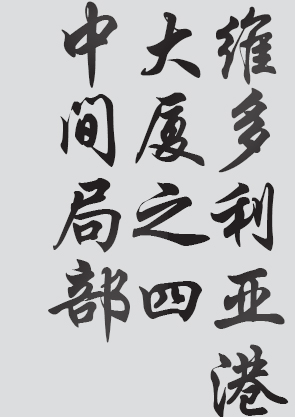 维多利亚港
大厦之四
中间局部